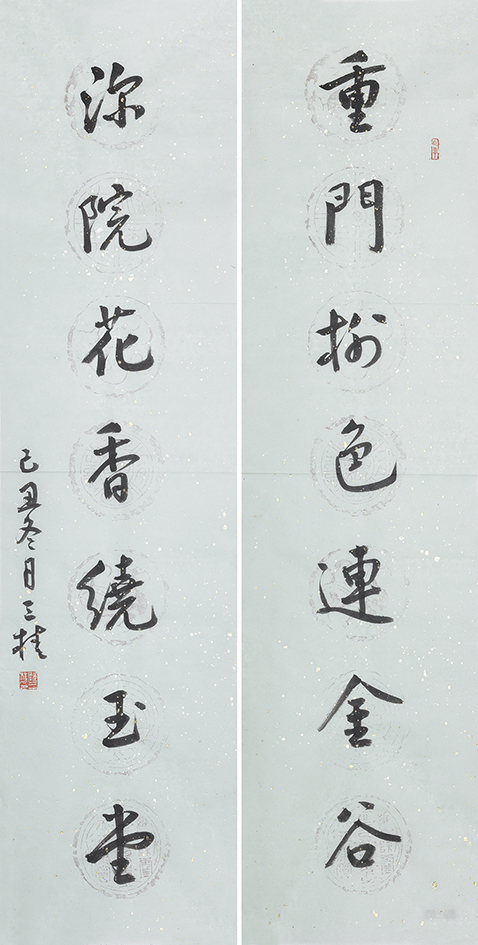 重門柳色連金谷
深院花香繞玉堂
己丑冬月三桂